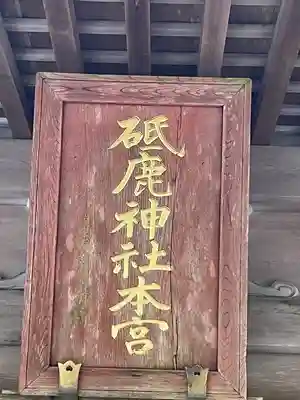 砥鹿神社本宮